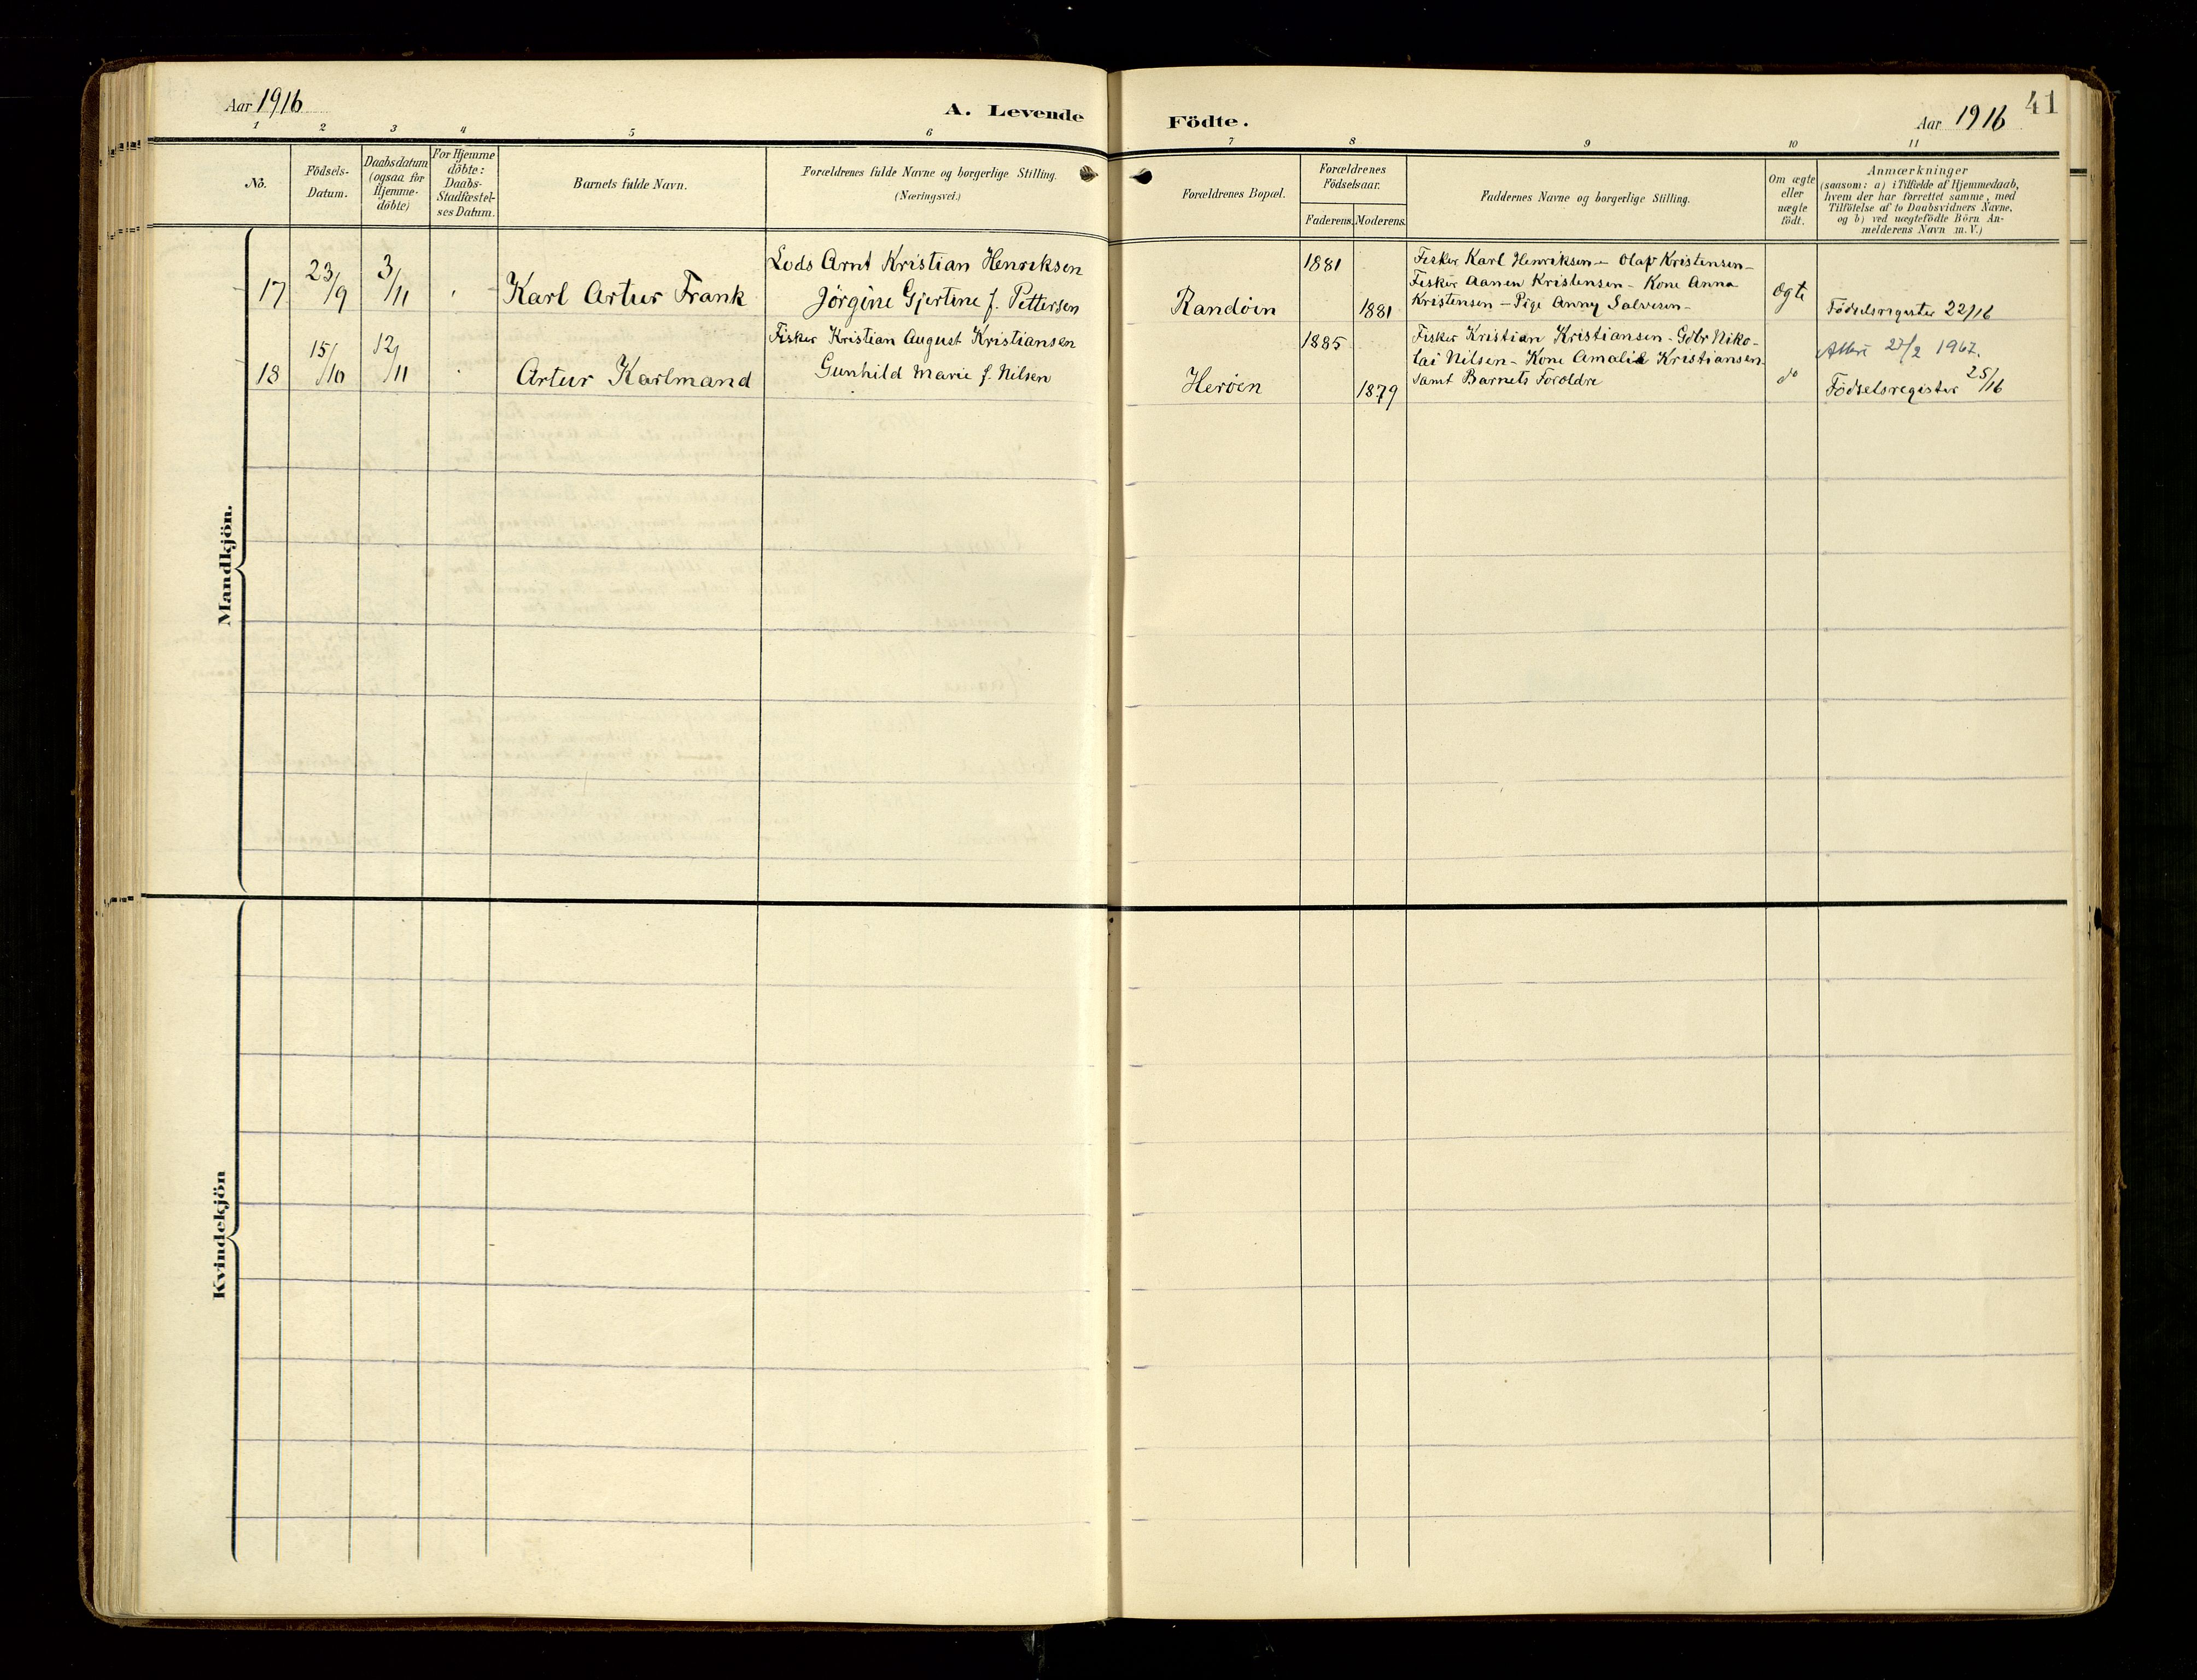 Aar 1916
A. Levende Födte.
Aar 1916
41
1 2 3 4 5 6 7 8 9 10 11
No.
Födsels-
Datum.
Daabsdatum
(ogsaa for
Hjemme-
döbte)
For Hjemme
döbte:
Daabs-
Stadfæstel-
ses Datum.
Barnets fulde Navn.
Forældrenes fulde Navne og borgerlige Stilling.
(Næringsvei.)
Forældrenes Bopæl.
Forældrenes
Födselsaar.
Faderens. Moderens.
Faddernes Navne og borgerlige Stilling.
Om ægte
eller
uægte
födt.
Anmærkninger
(saasom: a) i Tilfælde af Hjemmedaab,
hvem der har forrettet samme, med
Tilföielse af to Daabsvidners Navne,
og b) ved uægtefödte Börn An-
melderens Navn m. V.)
Mandkjön.
17
23/9
3/11
Karl Artur Frank
Lods Arnt Kristian Henriksen
Jörgine Gjertine f. Pettersen
Randöen
1881
1881
Fisker Karl Henriksen - Olaf Kristensen -
Fisker Aanen Kristensen - Kone Anna
Kristensen - Pige Anny Salvesen -
ægte
Födselsregister 22/16
18
15/10
12/11
Artur Karlmand
Fisker Kristian August Kristiansen
Gunhild Marie f. Nilsen
Heröen
1885
1879
Fisker Kristian Kristiansen - Gdbr Niko-
lai Nilsen - Kone Amalie Kristiansen
samt Barnets Foreldre
do
Attest 27/2 1967.
Födselsregister 25/16
Kvindekjön